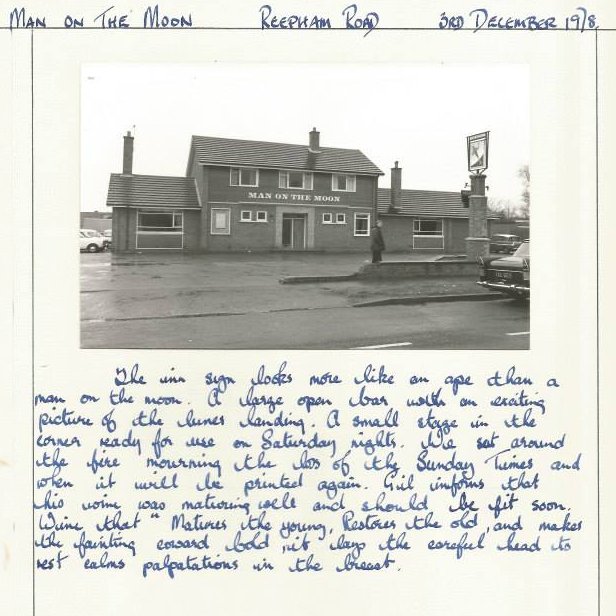 Man on the Moon Reepham Road 3rd December 1978.
MAN ON THE MOON
The inn sign looks more like an ape than a
man on the moon. A large open bar with an exciting
picture of the lunes landing. A small stage in the
corner ready for use on Saturday nights. We sat around
the fire mourning the los of the Sunday Times and
when it will be printed again. Gil informs that
his wine was maturing well and should be fit soon.
Wine that "Matures the young, Restores the old, and makes
the fainting coward bold, it lays the careful head to
rest calms palpatations in the breast.